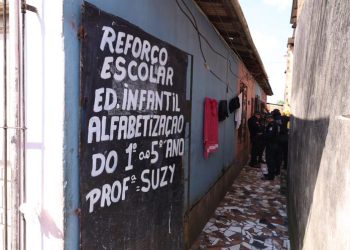 REFORÇO
ESCOLAR
ED. INFANTIL
ALFABETIZAÇÃO
DO 1º ao 5º ANO
PROFª SUZY